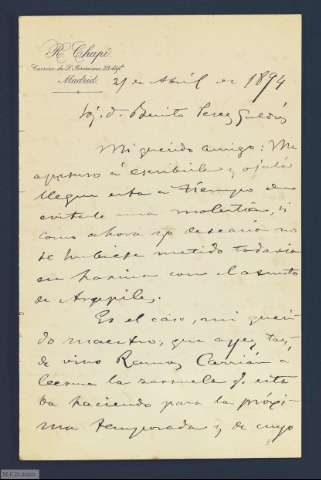 R. Chapí
Madrid.
21 de Abril de 1894
Sr. d. Benito Perez Galdós
Mi querido amigo: Me
apresuro á escribirle y ojalá
llegue esta a tiempo de
evitarle una molestia, si
como ahora yo desearia no
se hubiese metido todavia
en harina con el asunto
de Arapiles.
Es el caso, mi queri-
do maestro, que ayer tar-
de vino Ramos Carrión á
leerme la zarzuela q. esta
ba haciendo para la próxi-
ma temporada y de cuyo